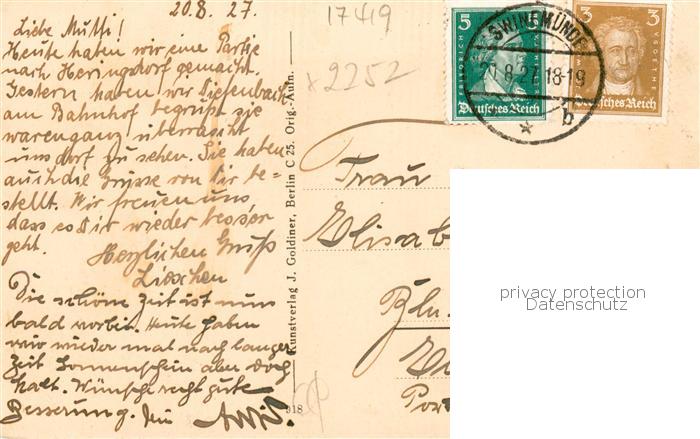 20.8.27.
Liebe Mutti!
Heute haben wir eine Partie
nach Heringsdorf gemacht.
Gestern haben wir Diefenbach
am Bahnhof begrüßt sie
waren ganz überrascht
uns dort zu sehen. Sie haben
auch die Grüsse von Dir be=
stellt. Wir freuen uns,
dass es Dir wieder besser
geht.
Herzlichen Gruß
Lieschen
Die schöne Zeit ist nun
bald vorbei. Heute haben
wir wieder mal nach langer
Zeit Sonnenschein aber doch
kalt. Wünsche recht gute
Besserung. Dein
918
Kunstverlag J. Goldiner, Berlin C 25. Orig.-Aufn.
17419
x 2252
5 5
FRIEDRICH
Deutsches Reich
SWINEMÜNDE
.8.27.18-19
b
3 3
Deutsches Reich
Frau
Elisab
Bln.
privacy protection
Datenschutz